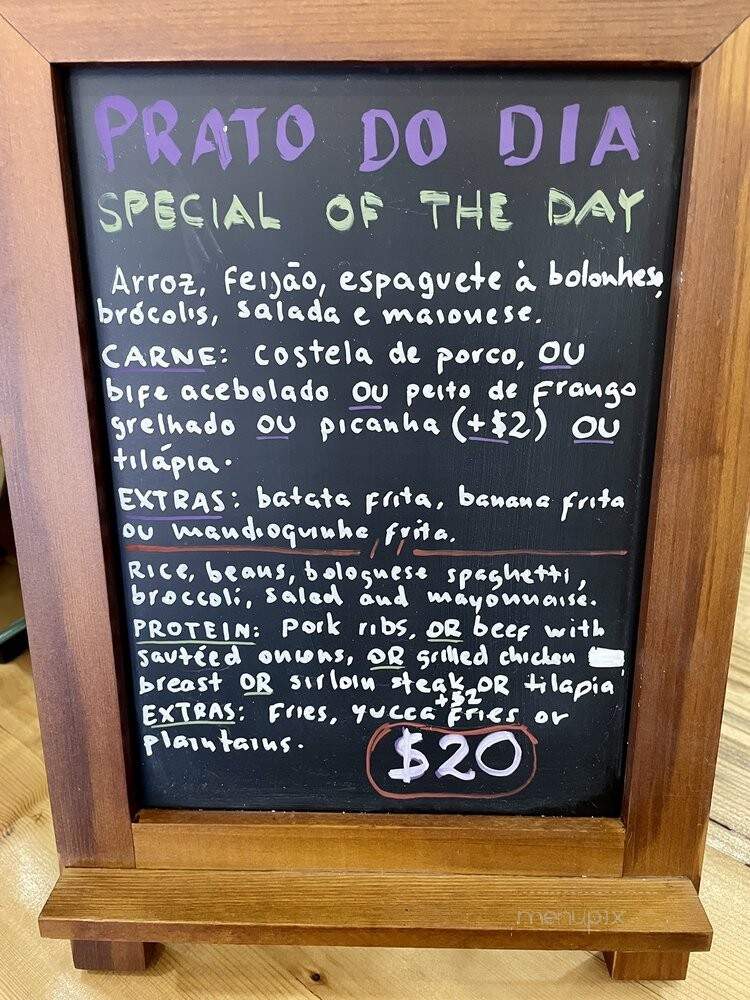 PRATO DO DIA
SPECIAL OF THE DAY
Arroz, feijão, espaguete à bolonhesa,
brócolis, salada e maionese.
CARNE: costela de porco, OU
bife acebolado OU peito de frango
grelhado OU picanha (+$2) OU
tilápia.
EXTRAS: batata frita, banana frita
ou mandioquinha frita.
Rice, beans, bolognese spaghetti,
broccoli, salad and mayonnaise.
PROTEIN: Pork ribs, OR beef with
sautéed onions, OR grilled chicken
breast OR sirloin steak OR tilapia
+$2
EXTRAS: Fries, yucca fries or
plaintains.
$20
menupix